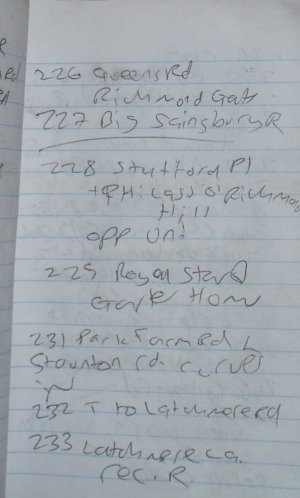 226 Queens Rd
Richmond Gate
227 Big Sainsburys R
228 Stafford Pl
Lass O Richmo
Hill
opp Uni
225 Royal Star &
Garter Hom
231 Park Farm Rd L
Staunton rd. curves
232 T to Latchmere rd
233 Latchmere La.
rec. R